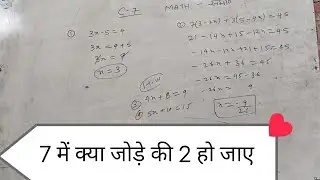 C-7
MATH-
① 3x-5=4
3x = 4+5
3x = 9
x=3
② 7(3-2x)+3(5-4x)=45
21-14x+15-12x=45
-14x-12x+21+15=45
-26x+36=45
-26x=45-36
-26x= 9
x=-9/26
③ 4x+8=9
④ 5x+10=15
7 में क्या जोड़े की 2 हो जाए